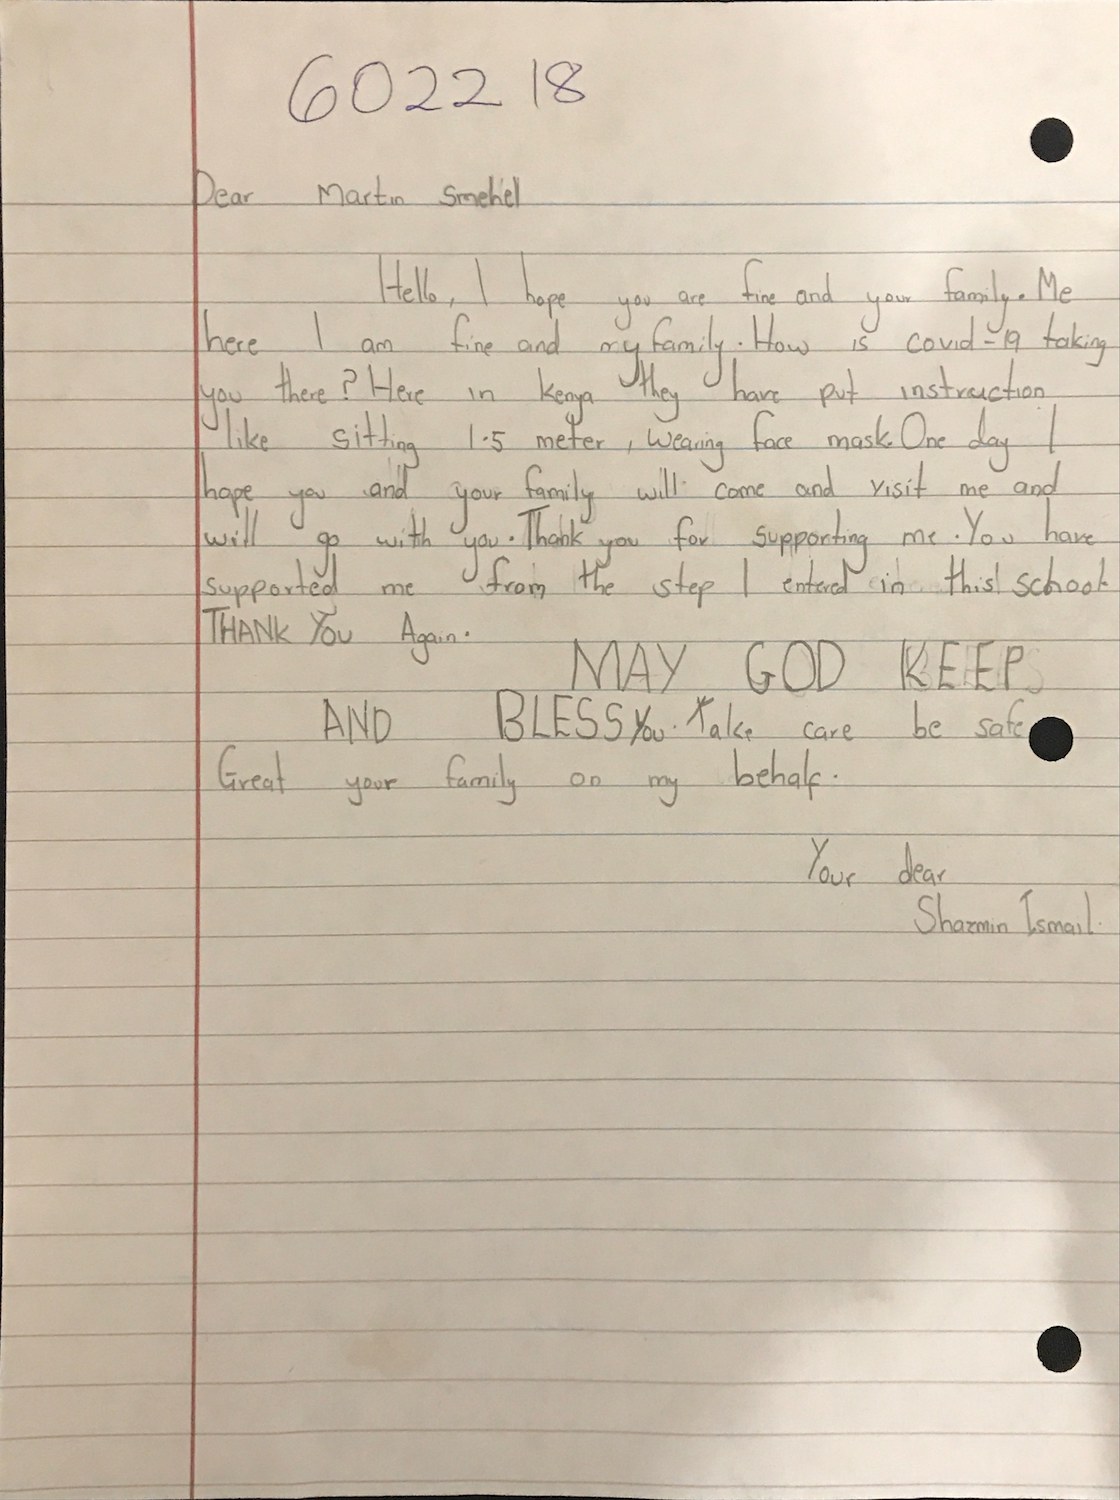 6022 18
Dear Martin Smehel
Hello, I hope you are fine and your family. Me
here I am fine and my family. How is covid-19 taking
you there? Here in kenya they have put instruction
like sitting 1.5 meter, wearing face mask. One day I
hope you and your family will come and visit me and
will go with you. Thank you for supporting me. You have
supported me from the step I entered in this school
THANK YOU Again.
MAY GOD KEEP
AND BLESS You. Take care be safe
Great your family on my behalf.
Your dear
Shazmin Ismail.